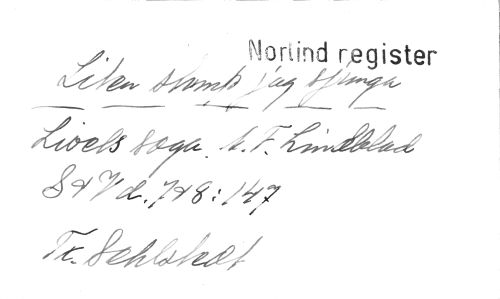 Norlind register
Liten stomp jag sjunga
Livets soga. A. F. Lindblad
S & V d. 7&8: 147
Tx. Sehlstedt